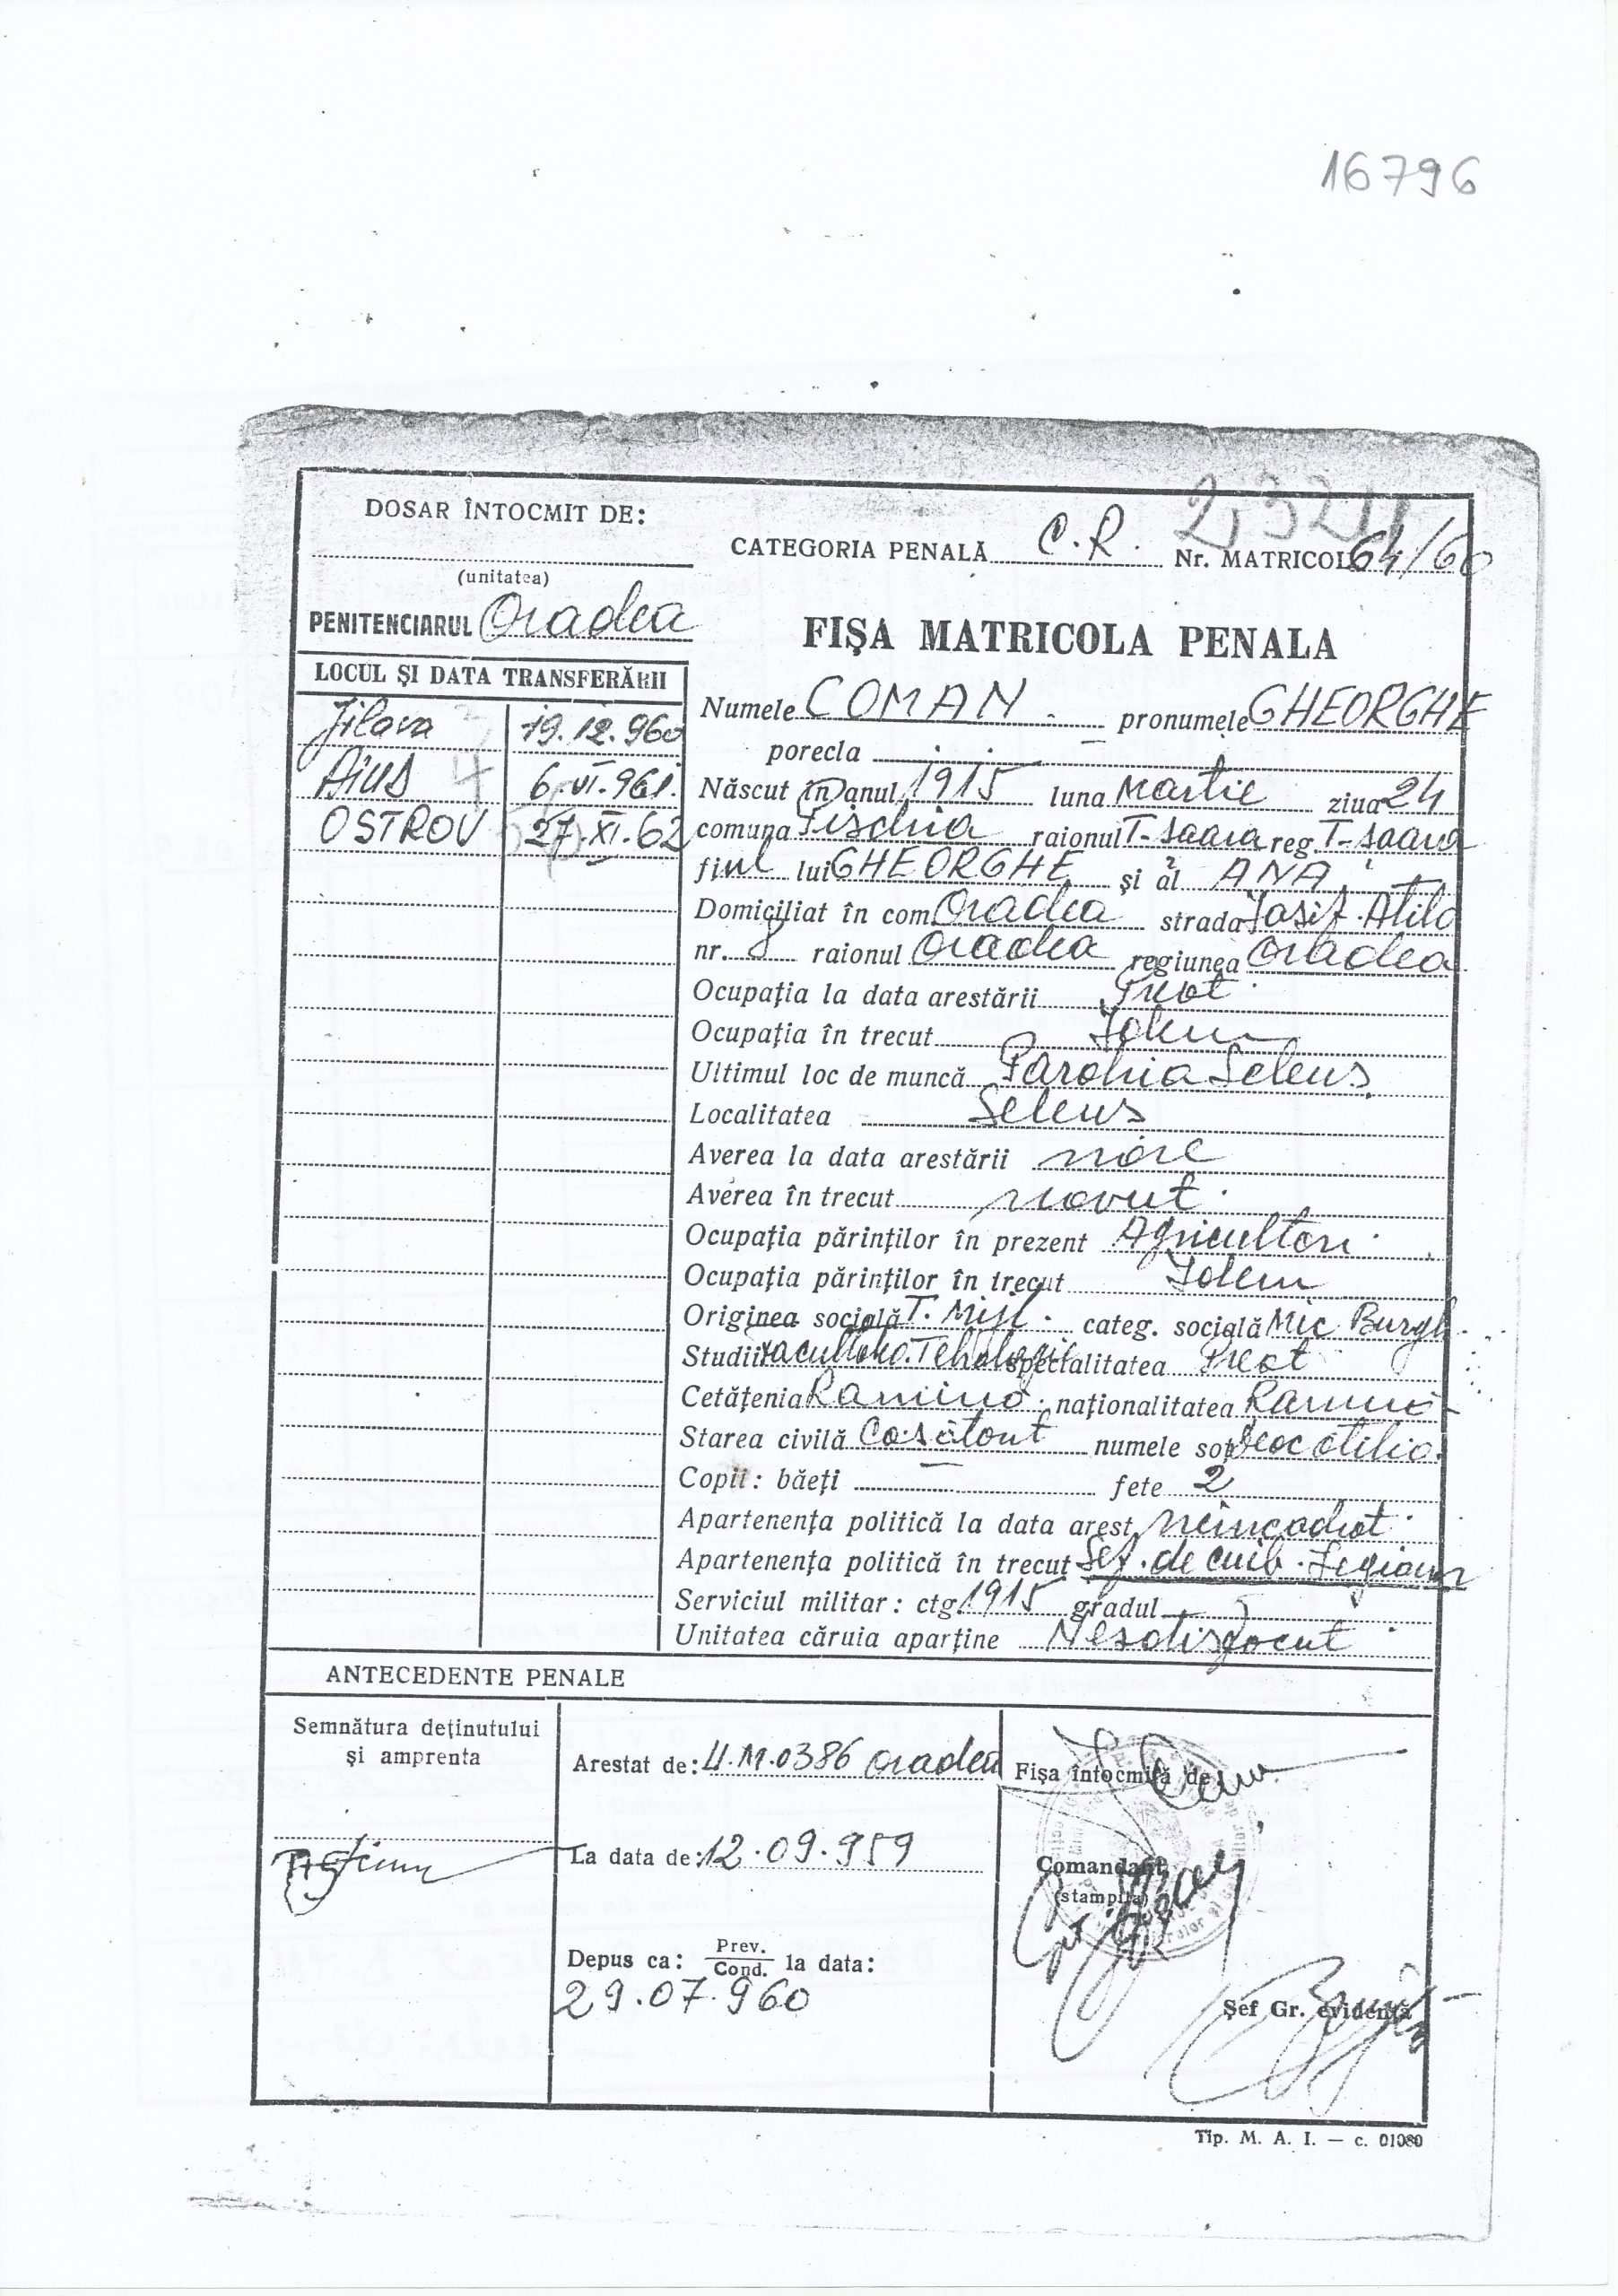 16796
DOSAR ÎNTOCMIT DE:
(unitatea)
CATEGORIA PENALĂ C.R. Nr. MATRICOL 64/60
PENITENCIARUL Oradea
FIŞA MATRICOLA PENALA
LOCUL ŞI DATA TRANSFERĂRII
Jilava 19.12.960
Aiud 6.VI.961.
OSTROV 27.XI.62
Numele COMAN pronumele GHEORGHE
porecla
Născut în anul 1915 luna Martie ziua 24
comuna Pischia raionul T-șoara reg. T-șoara
fiul lui GHEORGHE şi al ANA
Domiciliat în com Oradea strada Iosif Atila
nr. 8 raionul Oradea regiunea Oradea
Ocupaţia la data arestării Preot
Ocupaţia în trecut Idem
Ultimul loc de muncă Parohia Seleus
Localitatea Seleus
Averea la data arestării nare
Averea în trecut navut
Ocupaţia părinţilor în prezent Agricultori
Ocupaţia părinţilor în trecut Idem
Originea socială T. Mijl. categ. socială Mic Burgh
Studii specialitatea Preot
Cetăţenia Romina naţionalitatea Romina
Starea civilă Casatorit numele soţ
Copii: băeţi — fete 2
Apartenenţa politică la data arest neincadrat
Apartenenţa politică în trecut Sef. de cuib. Legionar
Serviciul militar: ctg. 1915 gradul
Unitatea căruia aparţine
ANTECEDENTE PENALE
Semnătura deţinutului
şi amprenta
Arestat de: U.M.0386 Oradea
La data de: 12.09.959
Depus ca: Prev. / Cond. la data:
29.07.960
Fişa întocmită de
Comandant
(stampila)
Şef Gr. evidenţă
Tip. M. A. I. — c. 01080